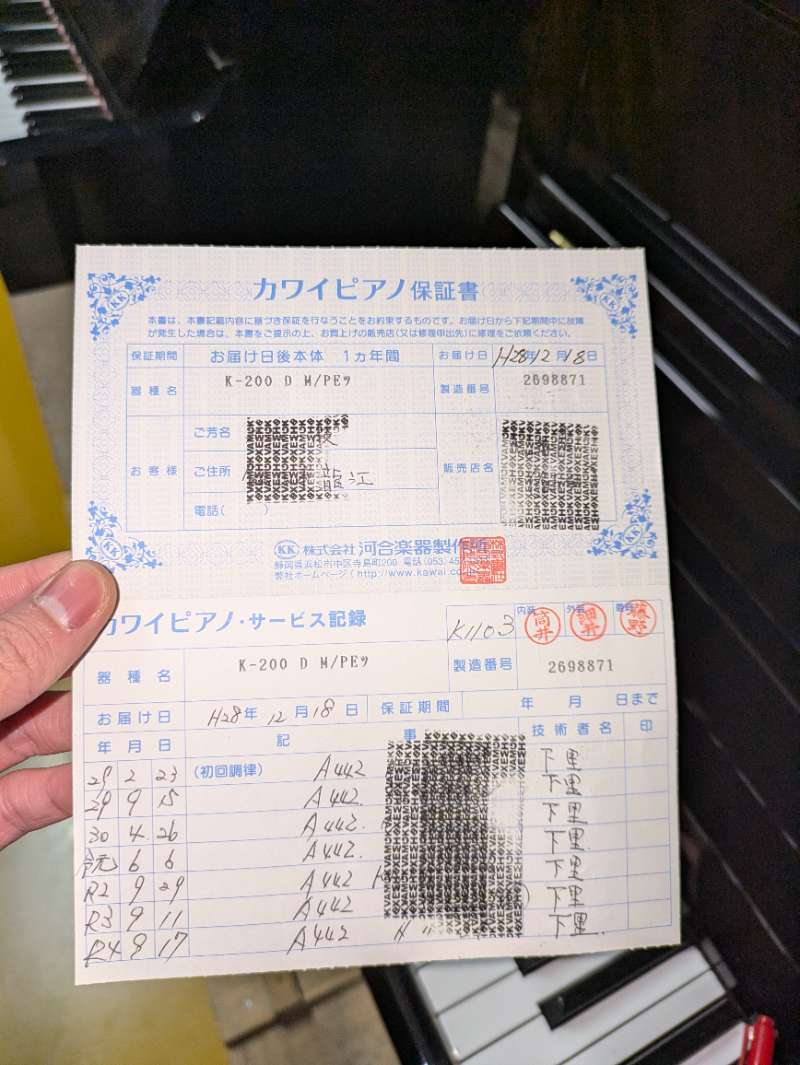 カワイピアノ保証書
本書は、本書記載内容に基づき保証を行なうことをお約束するものです。お届け日から下記期間中に故障
が発生した場合は、本書をご提示の上、お買上げの販売店(又は修理申出先)に修理をご依頼ください。
保証期間 お届け日後本体 1ヵ年間 お届け日 H28年12月18日
器種名 K-200 D M/PEッ 製造番号 2698871
お客様 ご芳名
ご住所 龍江 販売店名
電話( )
KK 株式会社 河合楽器製作所
静岡県浜松市中区寺島町200 電話(053)45
弊社ホームページ(http://www.kawai.co
カワイピアノ・サービス記録
K1103 内装 筒井 外装 細井
器種名 K-200 D M/PEッ 製造番号 2698871
お届け日 H28年12月18日 保証期間 年 月 日まで
年 月 日 記 事 技術者名 印
29 2 23 (初回調律) A442 下里
29 9 15 A442 下里
30 4 26 A442 下里
令元 6 6 A442 下里
R2 9 29 A442 下里
R3 9 11 A442 下里
R4 9 17 A442 下里